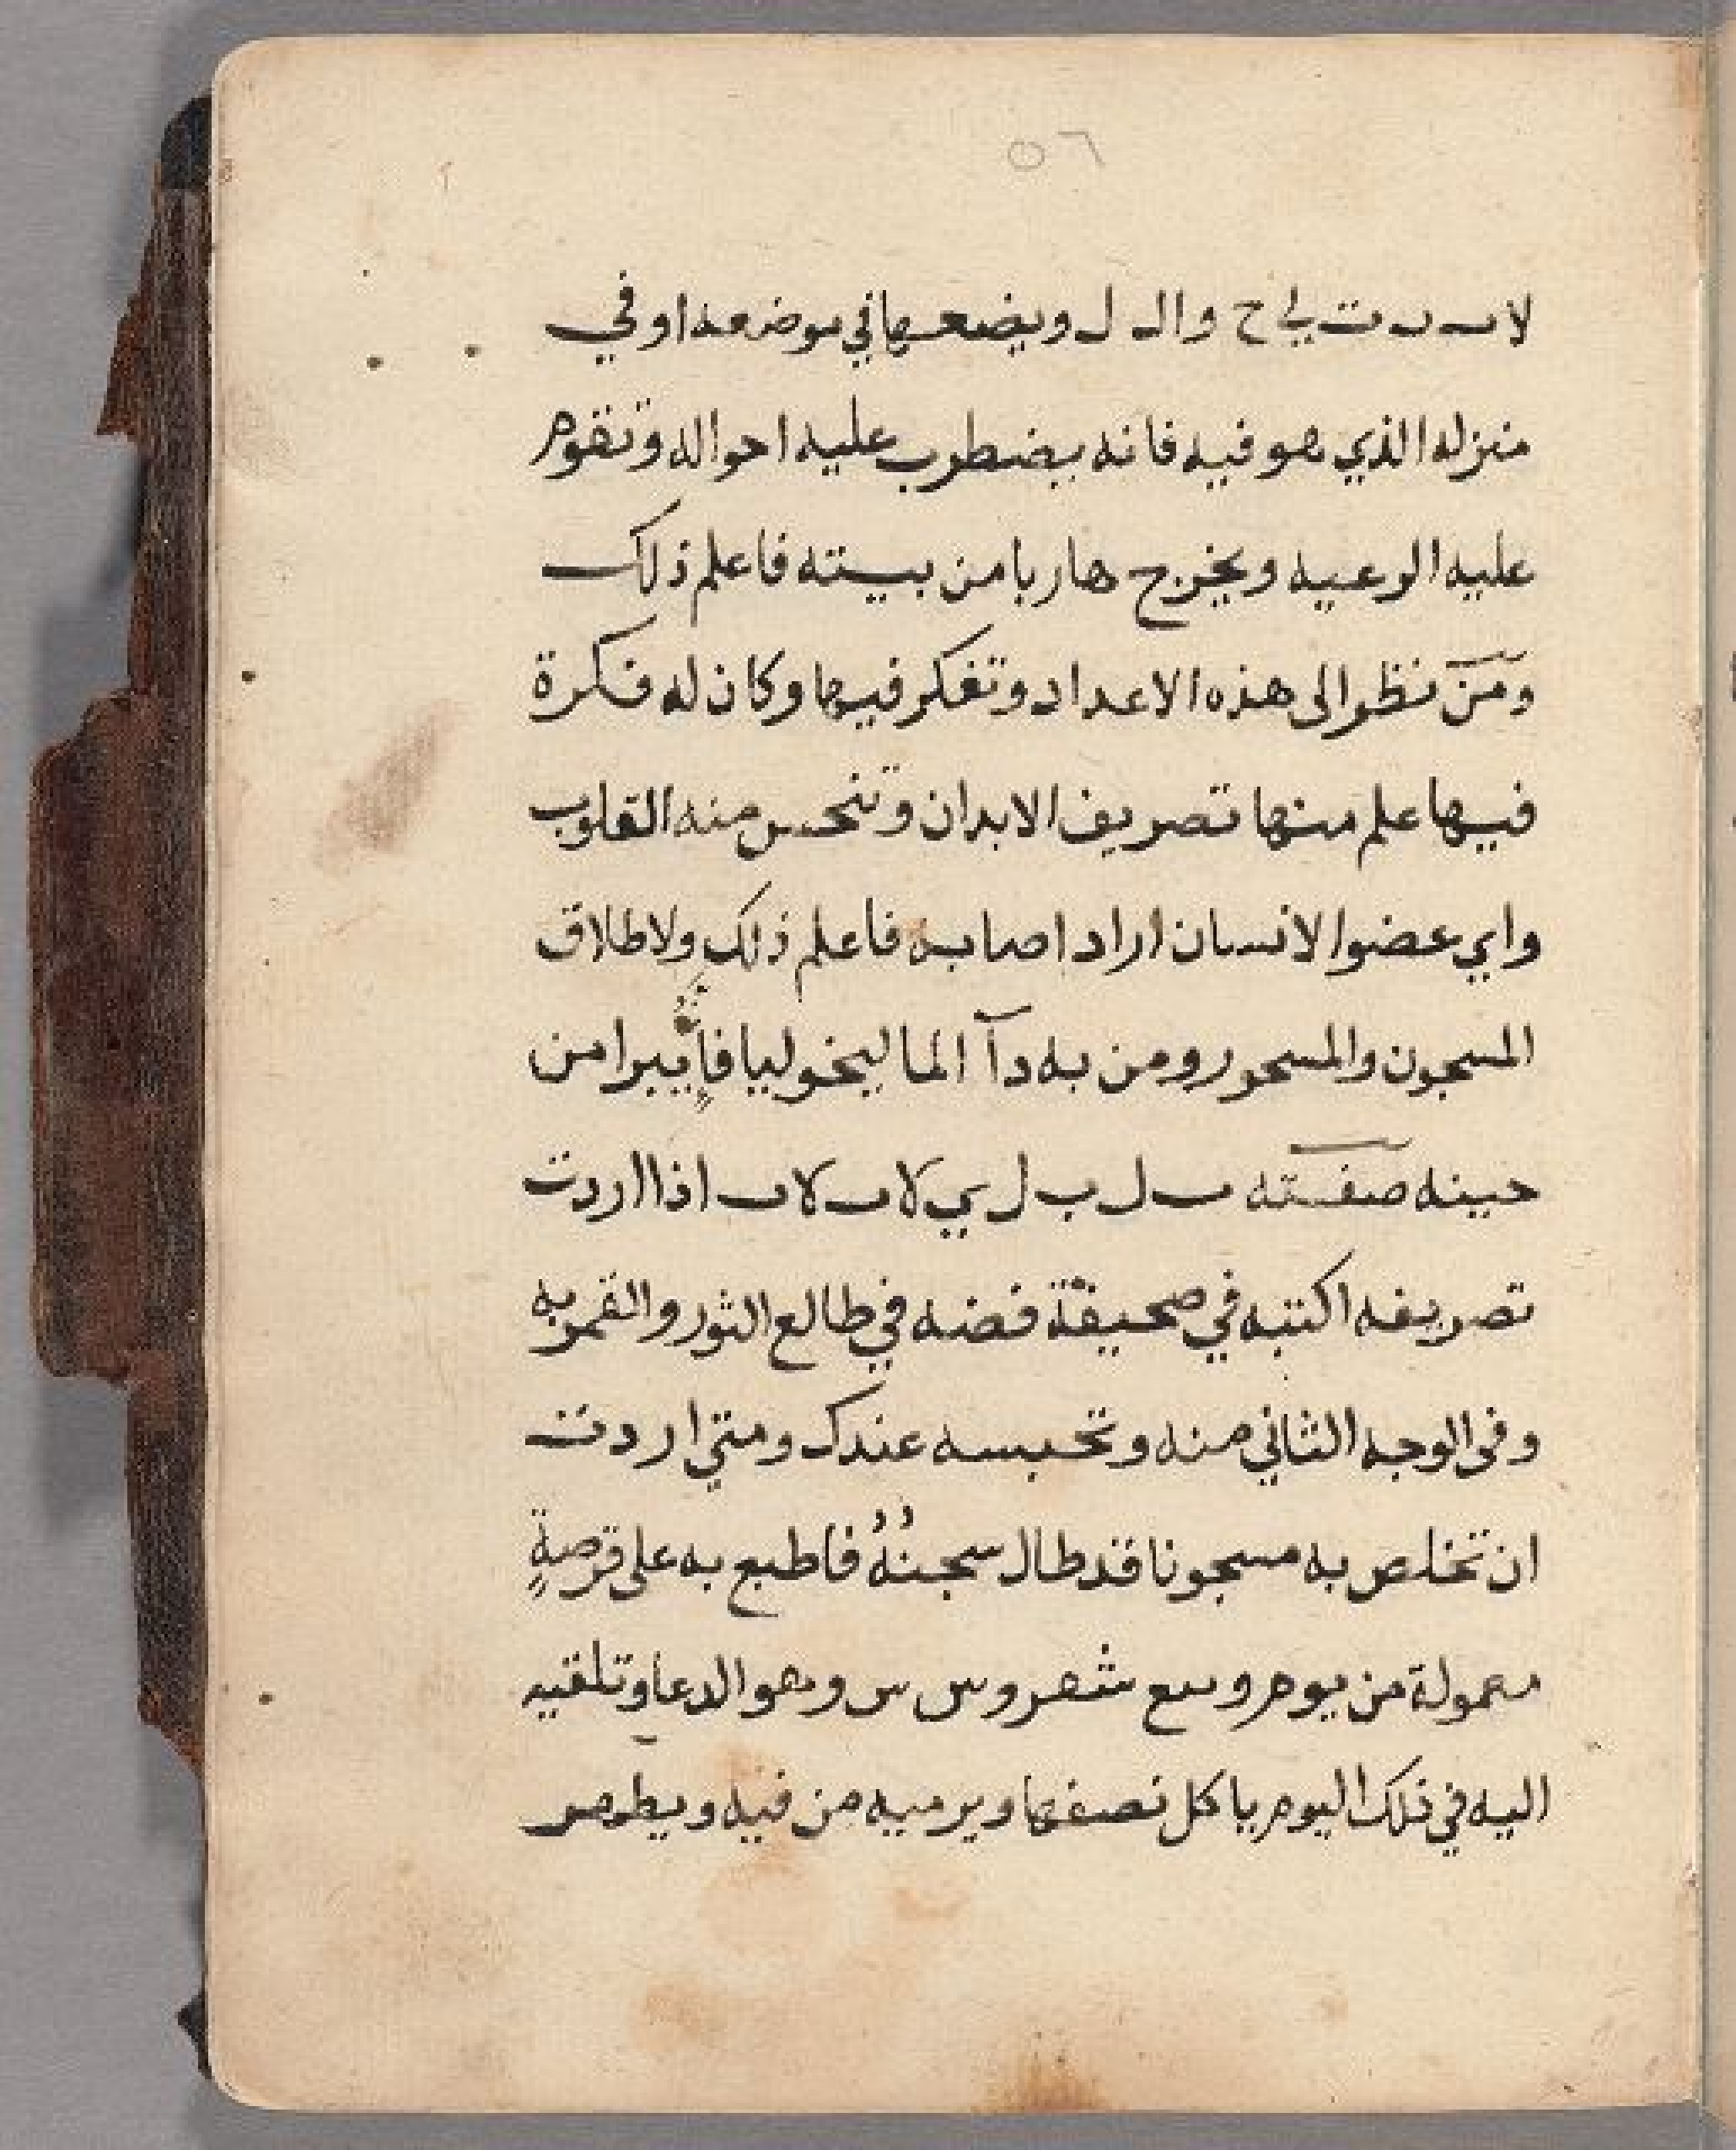 ٥٦
ويضعها في موضعه او في
منزله الذي هو فيه فانه يضطرب عليه احواله وتقوم
عليه الرعيه ويخرج هاربا من بيته فاعلم ذلك
ومن نظر الى هذه الاعداد وتفكر فيها وكان له فكرة
فيها علم منها تصريف الابدان وتنحس منه القلوب
واي عضوا لانسان اراد اصابه فاعلم ذلك ولاطلاق
المسجون والمسحور ومن به دآ الماليخوليا فانه يبرا من
حينه صفته اذا اردت
تصريفه اكتبه في صحيفة فضه في طالع الثور والقمر به
وفى الوجه الثاني منه وتحبسه عندك ومتي اردت
ان تخلص به مسجونا قد طال سجنهُ فاطبع به على قرصةٍ
معمولة من يوم وهو الدعا وتلقيه
اليه في ذلك اليوم ياكل نصفها ويرميه من فيه ويظهر